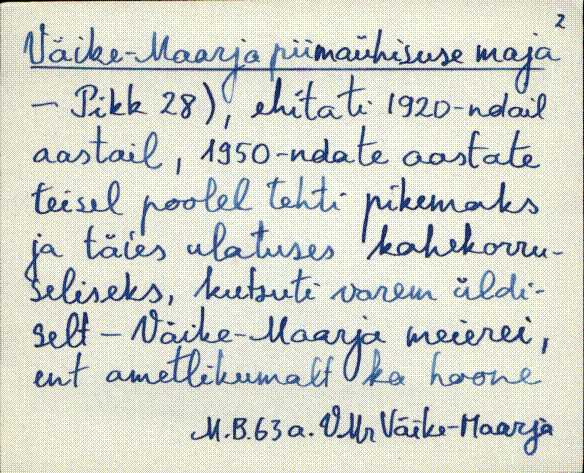 2
Väike-Maarja piimaühisuse maja
– Pikk 28), ehitati 1920-ndail
aastail, 1950-ndate aastate
teisel poolel tehti pikemaks
ja täies ulatuses kahekorru-
seliseks, kutsuti varem üldi-
selt – Väike-Maarja meierei,
ent ametlikumalt ka hoone
M.B. 63 a. VMr Väike-Maarja